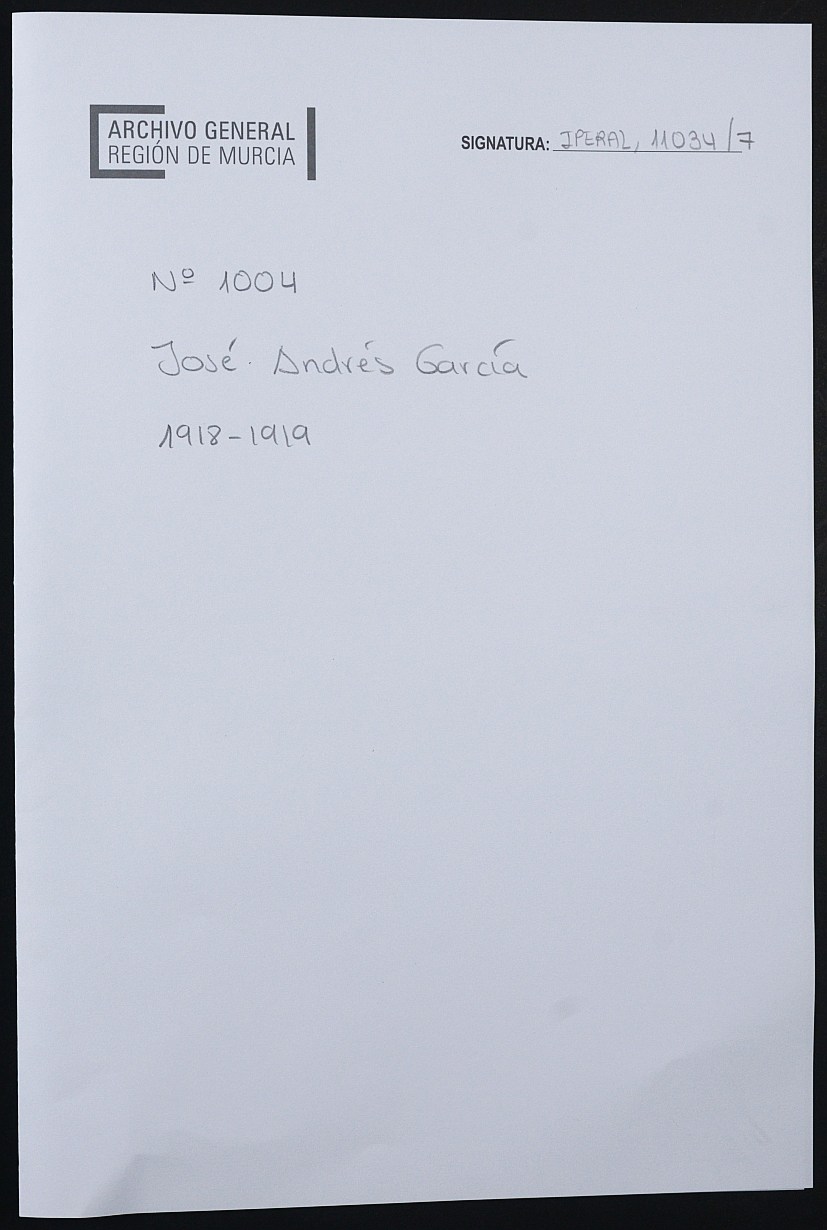 ARCHIVO GENERAL
REGIÓN DE MURCIA
SIGNATURA: IPERAL, 11034/7
Nº 1004
José Andrés García
1918-1919